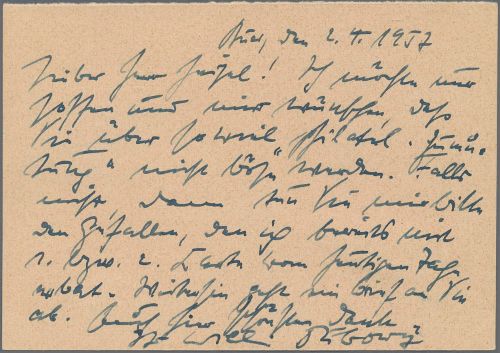 Buer, den 2.4.1957
Lieber Herr Heigel! Ich möchte nur
hoffen und mir wünschen, daß
Sie über soviel "philatel. Zumu-
tung" nicht böse werden. Falls
nicht, dann tun Sie mir bitte
den Gefallen, den ich bereits mit
1. bzw. 2. Karte vom heutigen Tage
erbat. Weiterhin geht ein Brief an Sie
ab. Auch hier schönsten Dank
Ihr Willi